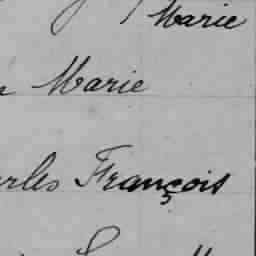 Marie
Marie
rles François